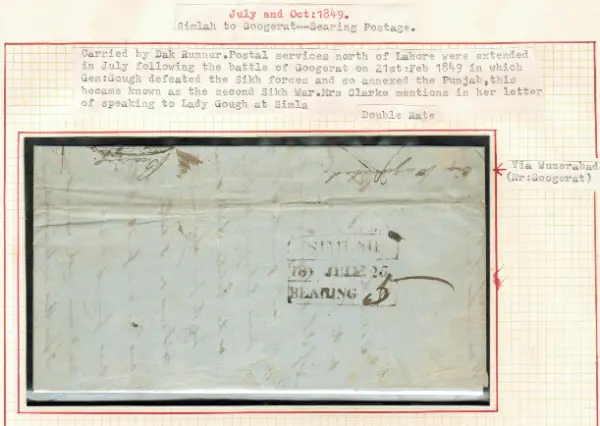 July and Oct:1849.
Simlah to Googerat--Bearing Postage.
Carried by Dak Runner.Postal services north of Lahore were extended
in July following the battle of Googerat on 21st:Feb 1849 in which
Gen:Gough defeated the Sikh forces and so annexed the Punjab,this
became known as the second Sikh War.Mrs Clarke mentions in her letter
of speaking to Lady Gough at Simla
Double Rate
Via Wuzerabad
(Nr:Googerat)
SIMLAH
JULY 25
BEARING